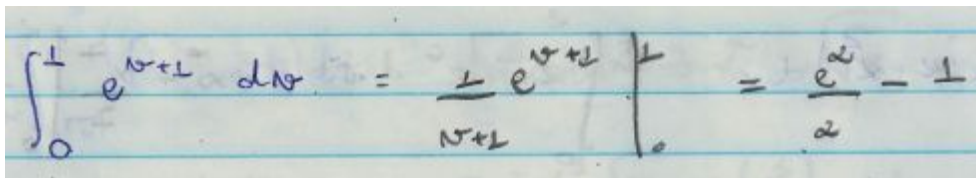 ∫₀¹ e^(v+1) dv = 1/(v+1) e^(v+1) |₀¹ = e²/2 - 1